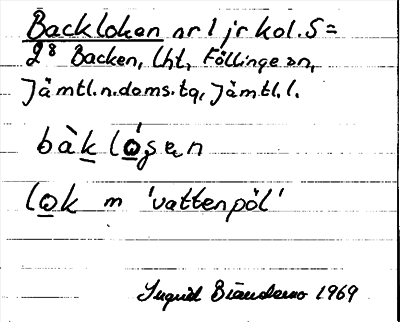 Backloken nr 1 jr kol. S =
2⁸ Backen, lht, Föllinge sn,
Jämtl.n.doms.tg, Jämtl.l.
bàk lósen
lok m 'vattenpöl'
Ingrid 1969